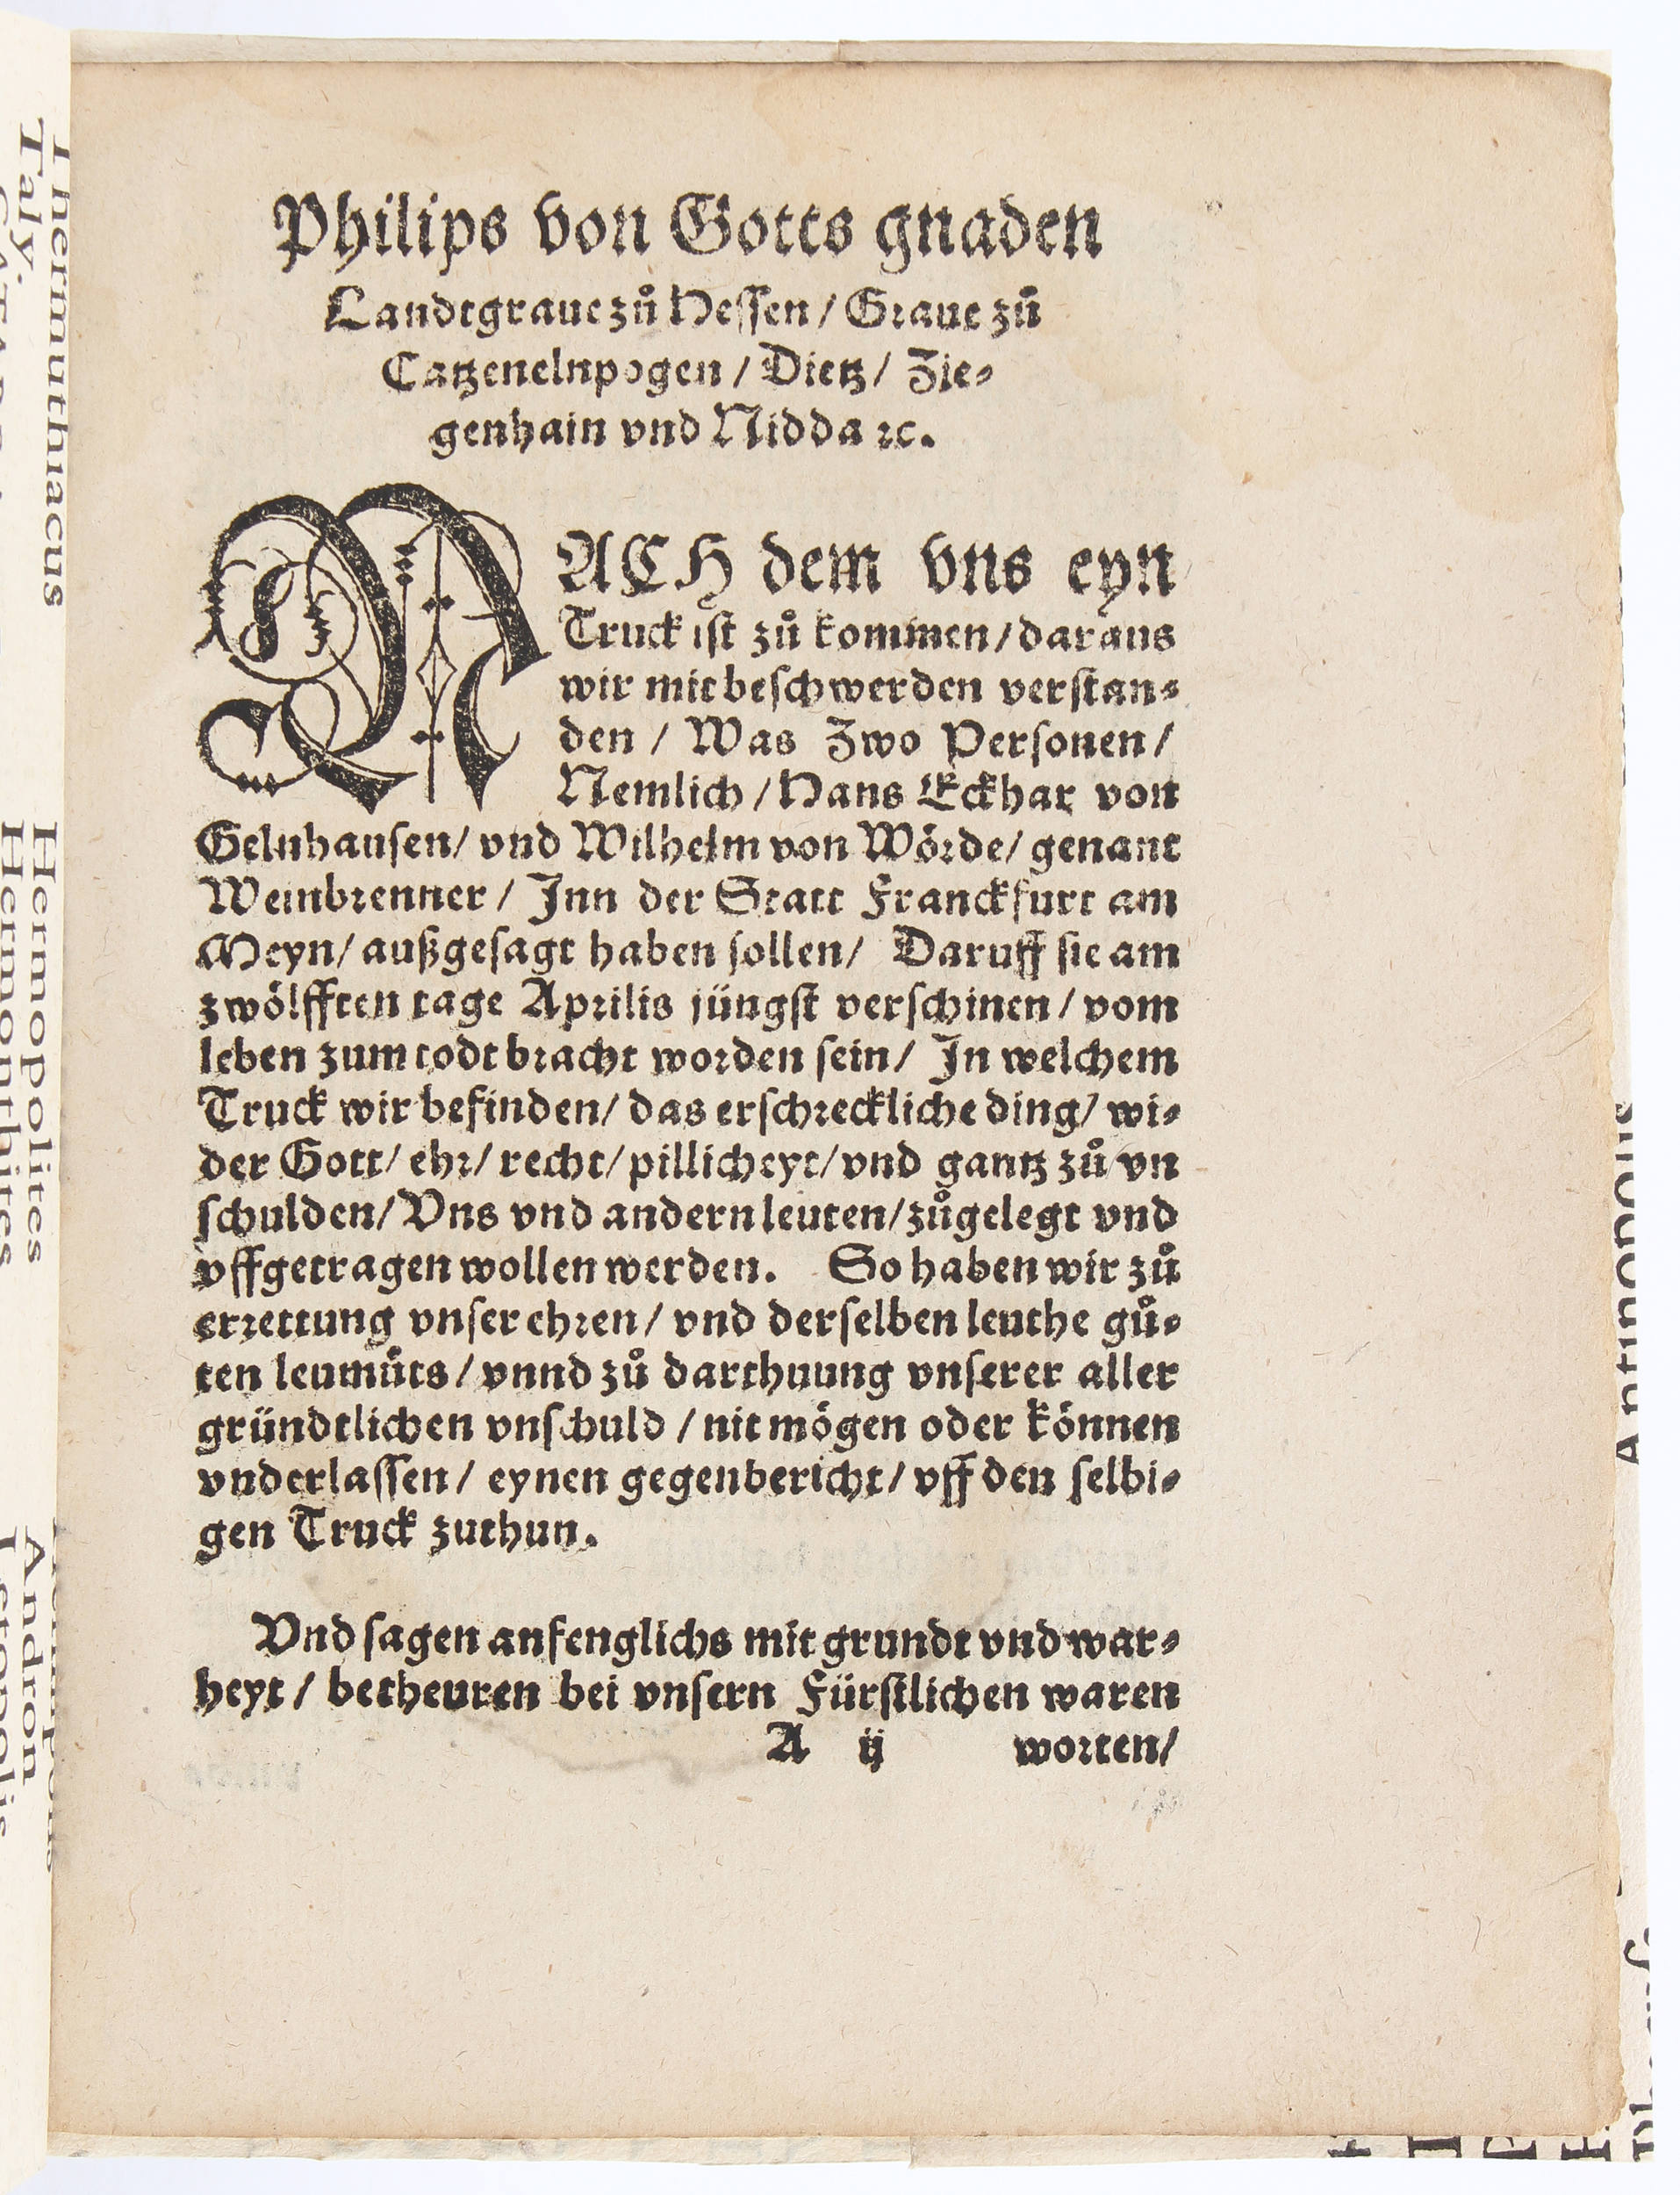 Philips von Gotts gnaden
Landtgraue zů Hessen / Graue zů
Catzenelnpogen / Dietz / Zie-
genhain vnd Nidda ꝛc.
NACH dem vns eyn
Truck ist zů kommen / daraus
wir mit beschwerden verstan-
den / Was Zwo Personen /
Nemlich / Hans Eckhar von
Gelnhausen / vnd Wilhelm von Wörde / genant
Weinbrenner / Inn der Statt Franckfurt am
Meyn / außgesagt haben sollen / Daruff sie am
zwölfften tage Aprilis jüngst verschinen / vom
leben zum todt bracht worden sein / In welchem
Truck wir befinden / das erschreckliche ding / wi-
der Gott / ehr / recht / pillicheyt / vnd gantz zů vn
schulden / Vns vnd andern leuten / zůgelegt vnd
vffgetragen wollen werden. So haben wir zů
errettung vnser ehren / vnd derselben leuthe gů-
ten leumůts / vnnd zů darthuung vnserer aller
gründtlichen vnschuld / nit mögen oder können
vnderlassen / eynen gegenbericht / vff den selbi-
gen Truck zuthun.
Vnd sagen anfenglichs mit grundt vnd war-
heyt / betheuren bei vnsern Fürstlichen waren
A ij worten /
Thermuthiacus
Taly.
Hermopolites
Hermonthites
Andron
Antinopolis